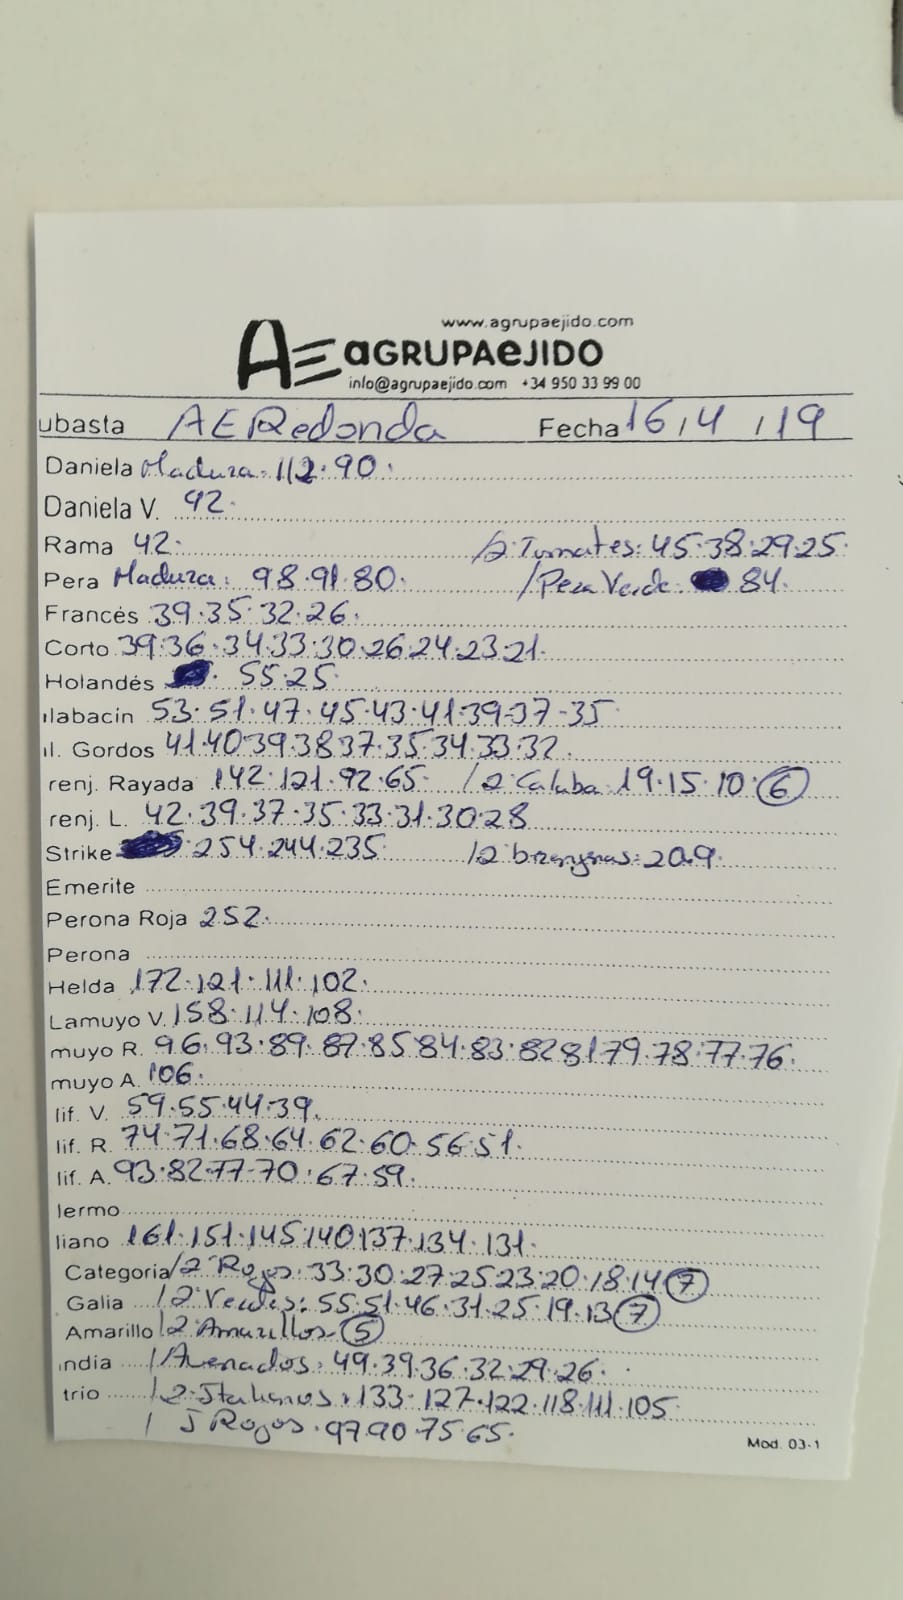 www.agrupaejido.com
AE aGRUPAeJIDO
info@agrupaejido.com +34 950 33 99 00
ubasta AERedonda Fecha 16/4/19
Daniela Madura: 112.90.
Daniela V. 92.
Rama 42. /2ª Tomates: 45.38.29.25.
Pera Madura: 98.91.80. /Pera Verde. 84.
Francés 39.35.32.26.
Corto 39.36.34.33.30.26.24.23.21.
Holandés 55.25.
labacin 53.51.47.45.43.41.39.37.35
l. Gordos 41.40.39.38.37.35.34.33.32.
renj. Rayada 142.121.92.65. /2ª Calaba: 19.15.10.6
renj. L. 42.39.37.35.33.31.30.28
Strike 254.244.235 /2ª brenjenas: 20.9.
Emerite
Perona Roja 252.
Perona
Helda 172.121.111.102.
Lamuyo V. 158.114.108.
muyo R. 96.93.89.87.85.84.83.82.81.79.78.77.76.
muyo A. 106.
lif. V. 59.55.44.39.
lif. R. 74.71.68.64.62.60.56.51.
lif. A. 93.82.77.70.67.59.
lermo
liano 161.151.145.140.137.134.131.
Categoria /2ª Rojos: 33.30.27.25.23.20.18.14.7
Galia /2ª Verdes: 55.51.46.31.25.19.13.7
Amarillo /2ª Amarillos. 5
india /Asenados: 49.39.36.32.29.26.
trio /2ª Italianos: 133.127.122.118.111.105
/ J Rojos. 97.90.75.65.
Mod. 03-1